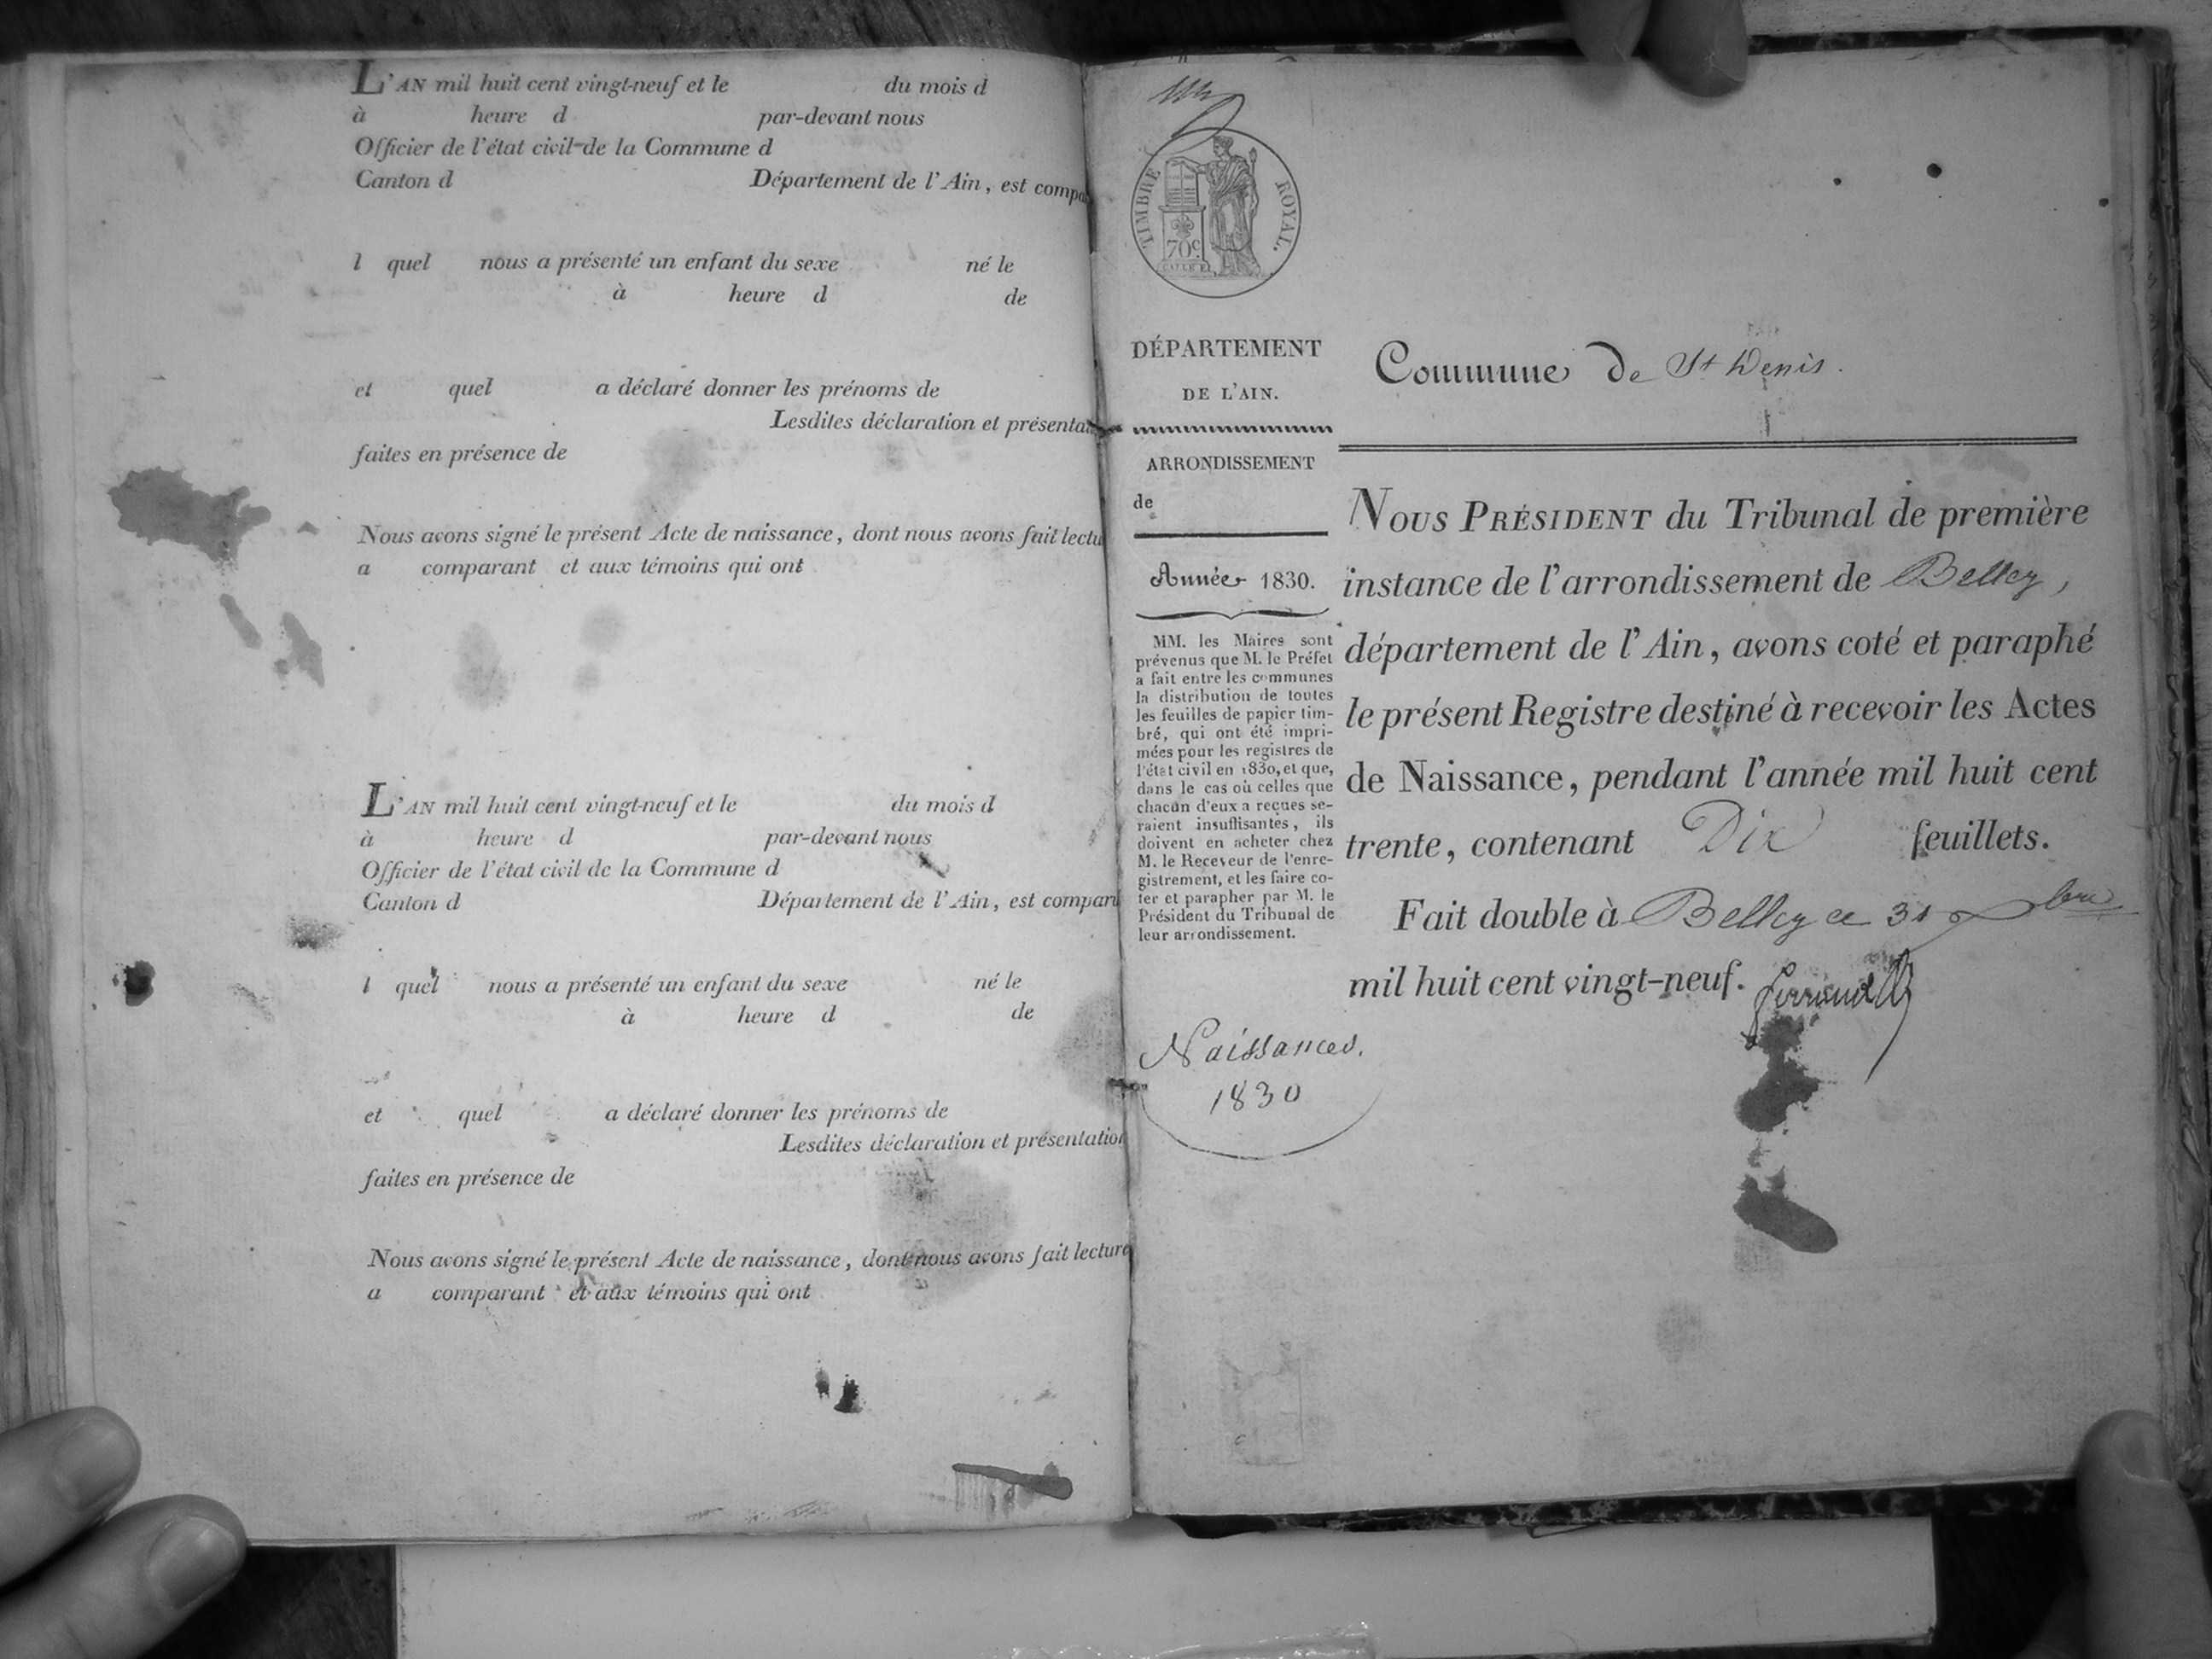 L'AN mil huit cent vingt-neuf et le du mois d
à heure d par-devant nous
Officier de l'état civil de la Commune d
Canton d Département de l'Ain, est compa
l quel nous a présenté un enfant du sexe né le
à heure d de
et quel a déclaré donner les prénoms de
Lesdites déclaration et présenta
faites en présence de
Nous avons signé le présent Acte de naissance, dont nous avons fait lectu
a comparant et aux témoins qui ont
L'AN mil huit cent vingt-neuf et le du mois d
à heure d par-devant nous
Officier de l'état civil de la Commune d
Canton d Département de l'Ain, est compar
l quel nous a présenté un enfant du sexe né le
à heure d de
et quel a déclaré donner les prénoms de
Lesdites déclaration et présentation
faites en présence de
Nous avons signé le présent Acte de naissance, dont nous avons fait lecture
a comparant et aux témoins qui ont
TIMBRE ROYAL.
70c
DÉPARTEMENT
DE L'AIN.
ARRONDISSEMENT
de
Année 1830.
MM. les Maires sont
prévenus que M. le Préfet
a fait entre les communes
la distribution de toutes
les feuilles de papier tim-
bré, qui ont été impri-
mées pour les registres de
l'état civil en 1830, et que,
dans le cas où celles que
chacun d'eux a reçues se-
raient insuffisantes, ils
doivent en acheter chez
M. le Receveur de l'enre-
gistrement, et les faire co-
ter et parapher par M. le
Président du Tribunal de
leur arrondissement.
Naissances.
1830
Commune de St Denis.
NOUS PRÉSIDENT du Tribunal de première
instance de l'arrondissement de Belley,
département de l'Ain, avons coté et paraphé
le présent Registre destiné à recevoir les Actes
de Naissance, pendant l'année mil huit cent
trente, contenant Dix feuillets.
Fait double à Belley ce 31 xbre
mil huit cent vingt-neuf.